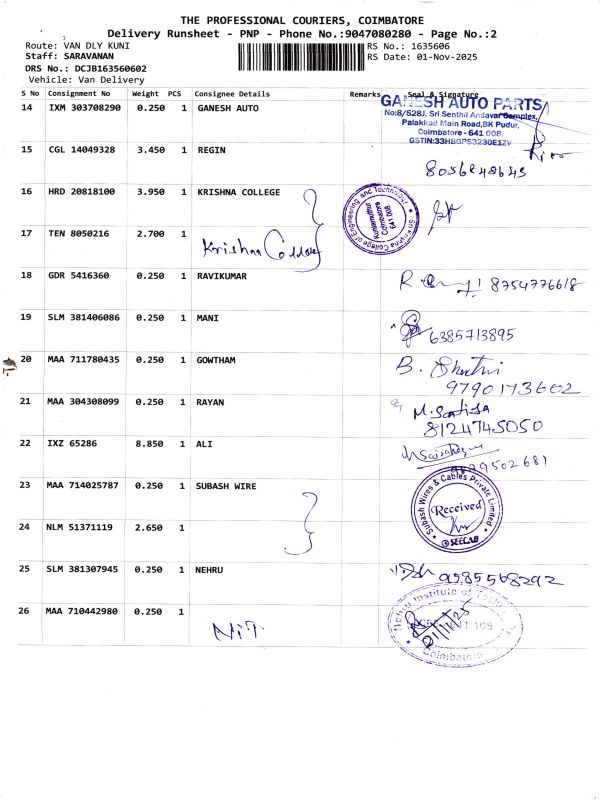 THE PROFESSIONAL COURIERS, COIMBATORE
Delivery Runsheet - PNP - Phone No.:9047080280 - Page No.:2
Route: VAN DLY KUNI RS No.: 1635606
Staff: SARAVANAN RS Date: 01-Nov-2025
DRS No.: DCJB163560602
Vehicle: Van Delivery
S No Consignment No Weight PCS Consignee Details Remarks Seal & Signature
14 IXM 303708290 0.250 1 GANESH AUTO
GANESH AUTO PARTS
No:8/528J, Sri Senthil Andavar Complex,
Palakkad Main Road,BK Pudur,
Coimbatore - 641 008.
GSTIN:33HBGPS3230E1ZV
15 CGL 14049328 3.450 1 REGIN
8056848643
16 HRD 20818100 3.950 1 KRISHNA COLLEGE
Sri Krishna College of Engineering and Technology
Kuniamuthur
Coimbatore
641 008
17 TEN 8050216 2.700 1
Krishna College
18 GDR 5416360 0.250 1 RAVIKUMAR 8754776618
19 SLM 381406086 0.250 1 MANI
6385713895
20 MAA 711780435 0.250 1 GOWTHAM B.
9790173602
21 MAA 304308099 0.250 1 RAYAN
8124745050
22 IXZ 65286 8.850 1 ALI
23 MAA 714025787 0.250 1 SUBASH WIRE
Subash Wires & Cables Private Limited
Received
SEECAB
24 NLM 51371119 2.650 1
25 SLM 381307945 0.250 1 NEHRU 9585568292
26 MAA 710442980 0.250 1
NIT
Nehru Institute of
01/11/25
105
Coimbatore